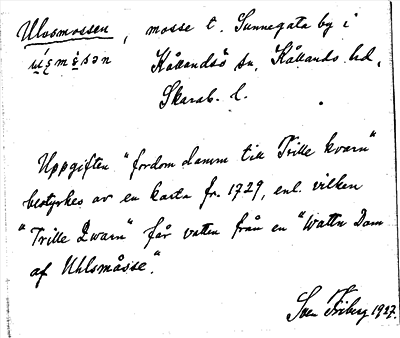 Ulvsmossen, mosse t. Sunnegata by i
Kållandsö sn, Kållands hd,
Skarab. l.
Uppgiften "fordom damm till Trille kvarn"
bestyrkes av en karta fr. 1729, enl. vilken
"Trille Qwarn" får vatten från en "Wattn Dam
af Uhlsmåsse".
Sven Friberg 1927.